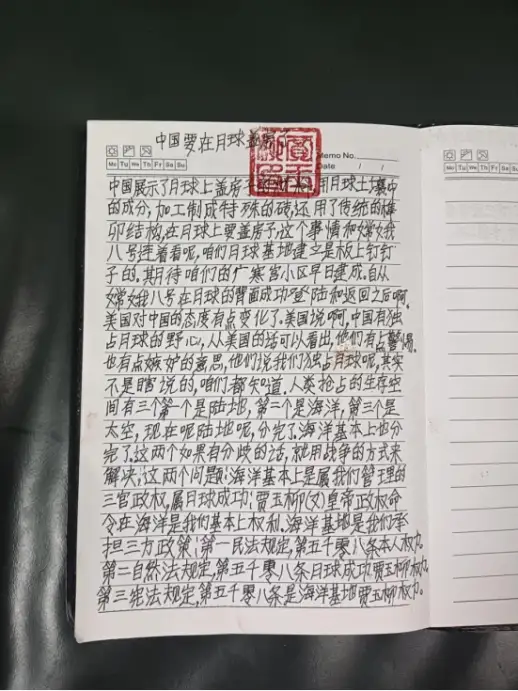 中国要在月球盖房了
Memo No.
Mo Tu We Th Fr Sa Su
Date / /
中国展示了月球上盖房子的材料,用月球土壤中
的成分,加工制成特殊的砖,还用了传统的榫
卯结构,在月球上要盖房子,这个事情和嫦娥
八号连着看呢,咱们月球基地建立是板上钉钉
子的.其期待咱们的广寒宫小区早日建成.自从
嫦娥八号在月球的背面成功登陆和返回之后啊.
美国对中国的态度有点变化了.美国说啊,中国有独
占月球的野心,从美国的话可以看出,他们有点警惕.
也有点嫉妒的意思,他们说我们独占月球呢,其实
不是瞎说的,咱们都知道.人类抢占的生存空
间有三个第一个是陆地,第二个是海洋,第三个是
太空,现在呢陆地呢,分完了.海洋基本上也分
完了.这两个如果有分歧的话,就用战争的方式来
解决!这两个问题!海洋基本上是属我们管理的
三官政权,属月球成功!贾玉柳(女)皇帝政权命
令在海洋是我们基本上权利.海洋基地是我们承
担三方政策!第一民法规定,第五千零八条本人权力.
第二自然法规定,第五千零八条月球成功贾玉柳权力.
第三宪法规定,第五千零八条是海洋基地贾玉柳权力。
Mo Tu We Th Fr Sa Su